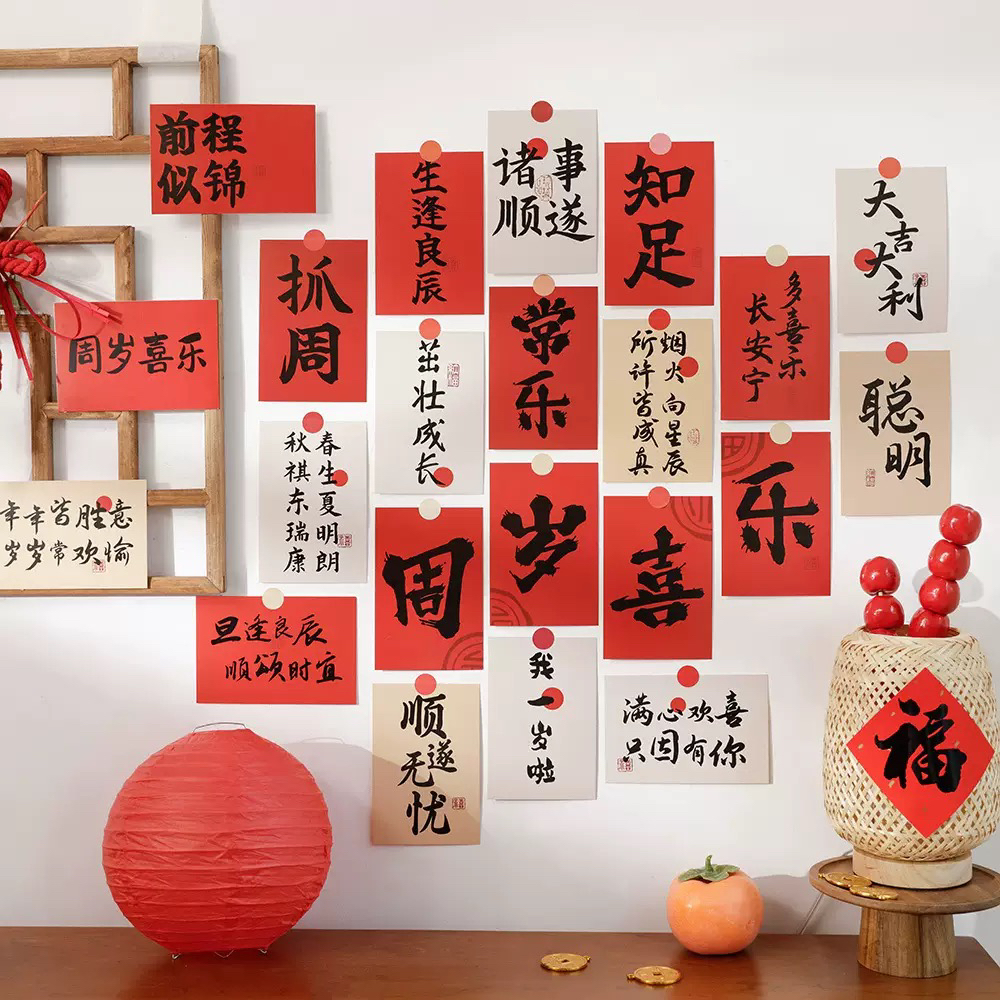 前程
似锦
周岁喜乐
年年皆胜意
岁岁常欢愉
抓周
春生夏明朗
秋祺东瑞康
旦逢良辰
顺颂时宜
生逢良辰
茁壮成长
诸事
顺遂
知足
常乐
烟火向星辰
所许皆成真
多喜乐
长安宁
大吉
大利
聪明
周
岁
喜
乐
顺遂
无忧
我一岁啦
满心欢喜
只因有你
福